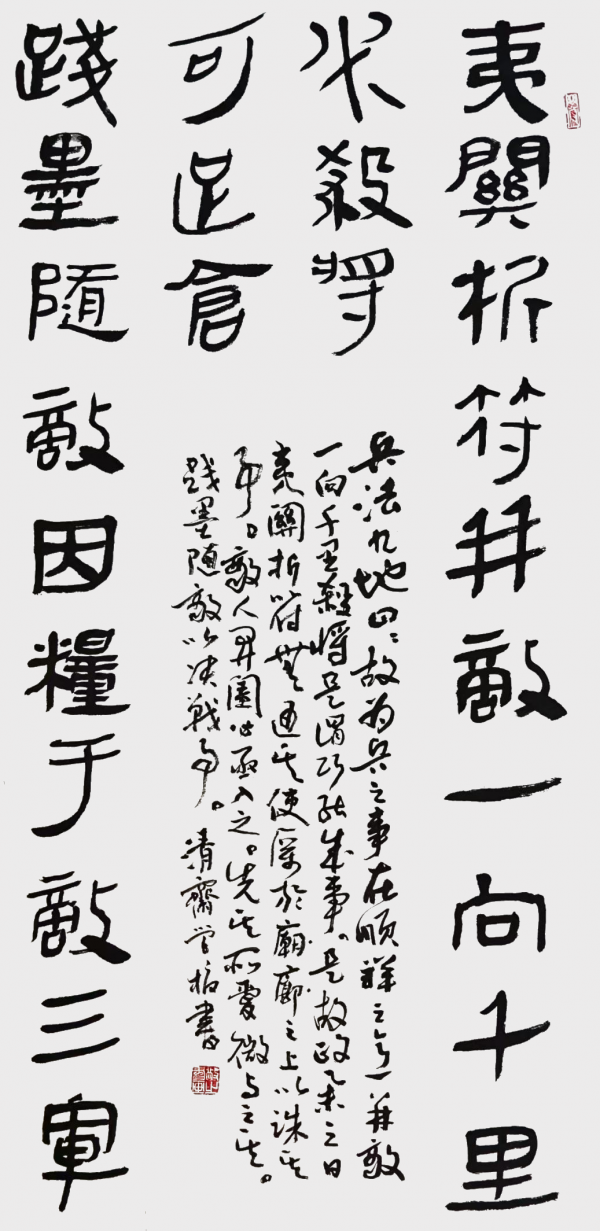 夷關折符并敵一向千里
必殺將
踐墨隨敵因糧于敵三軍
可足倉
兵法九地四：故為兵之事在順詳之意一并敵
一向千里殺將是謂巧能成事。是故政之日
夷關折符無通其使厲於廟廊之上以誅其
事。敵人開闔必亟入之。先其所愛微与之其。
踐墨隨敵以決戰事。清齋學柏書